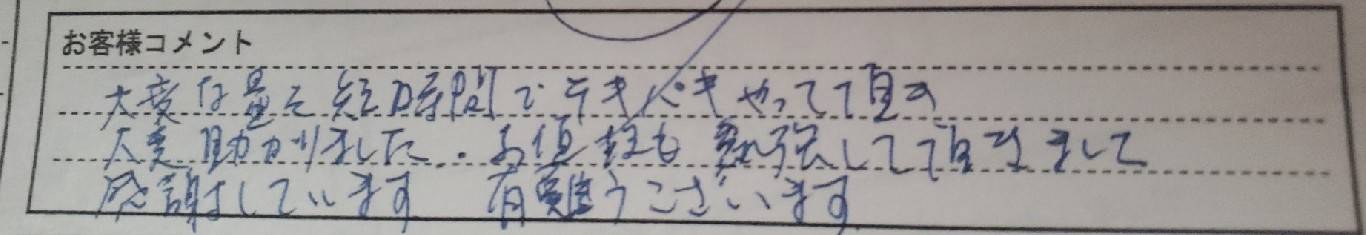 お客様コメント
大変な量を短時間でテキパキやって頂き
大変助かりました.お値段も勉強して頂きまして
感謝しています 有難うございます